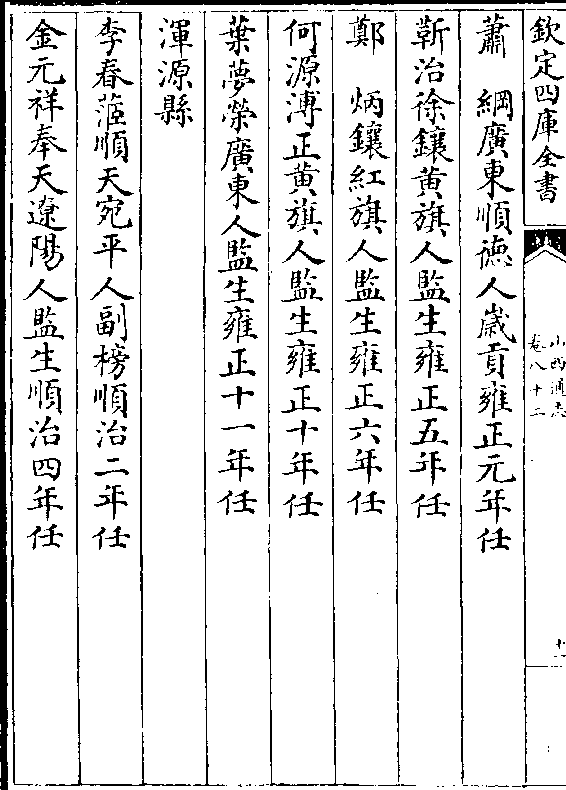 欽定四庫全書
山西通志
卷八十二
十一
蕭　綱廣東順德人歲貢雍正元年任
靳治徐鑲黃旗人監生雍正五年任
鄭　炳鑲紅旗人監生雍正六年任
何源溥正黃旗人監生雍正十年任
葉夢榮廣東人監生雍正十一年任
渾源縣
李春蒞順天宛平人副榜順治二年任
金元祥奉天遼陽人監生順治四年任